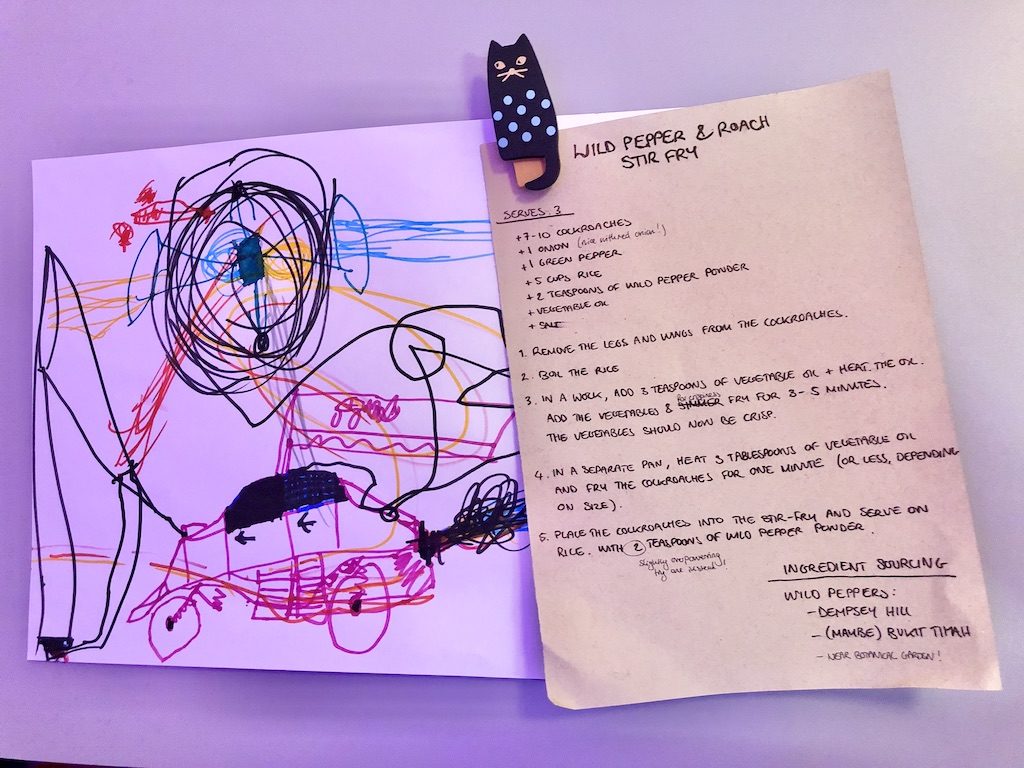 WILD PEPPER & ROACH
STIR FRY
SERVES: 3
+7-10 COCKROACHES
+1 ONION (nice withered onion!)
+1 GREEN PEPPER
+5 CUPS RICE
+2 TEASPOONS OF WILD PEPPER POWDER
+VEGETABLE OIL
+SALT
1. REMOVE THE LEGS AND WINGS FROM THE COCKROACHES.
2. BOIL THE RICE
3. IN A WOK, ADD 3 TEASPOONS OF VEGETABLE OIL + HEAT THE OIL.
for crispness
ADD THE VEGETABLES & SIMMER FRY FOR 3-5 MINUTES.
THE VEGETABLES SHOULD NOW BE CRISP.
4. IN A SEPARATE PAN, HEAT 3 TABLESPOONS OF VEGETABLE OIL
AND FRY THE COCKROACHES FOR ONE MINUTE (OR LESS, DEPENDING
ON SIZE).
5. PLACE THE COCKROACHES INTO THE STIR-FRY AND SERVE ON
RICE. WITH 2 TEASPOONS OF WILD PEPPER POWDER.
slightly overpowering
try one instead!
INGREDIENT SOURCING
WILD PEPPERS:
- DEMPSEY HILL
- (MAYBE) BUKIT TIMAH
- NEAR BOTANICAL GARDEN!